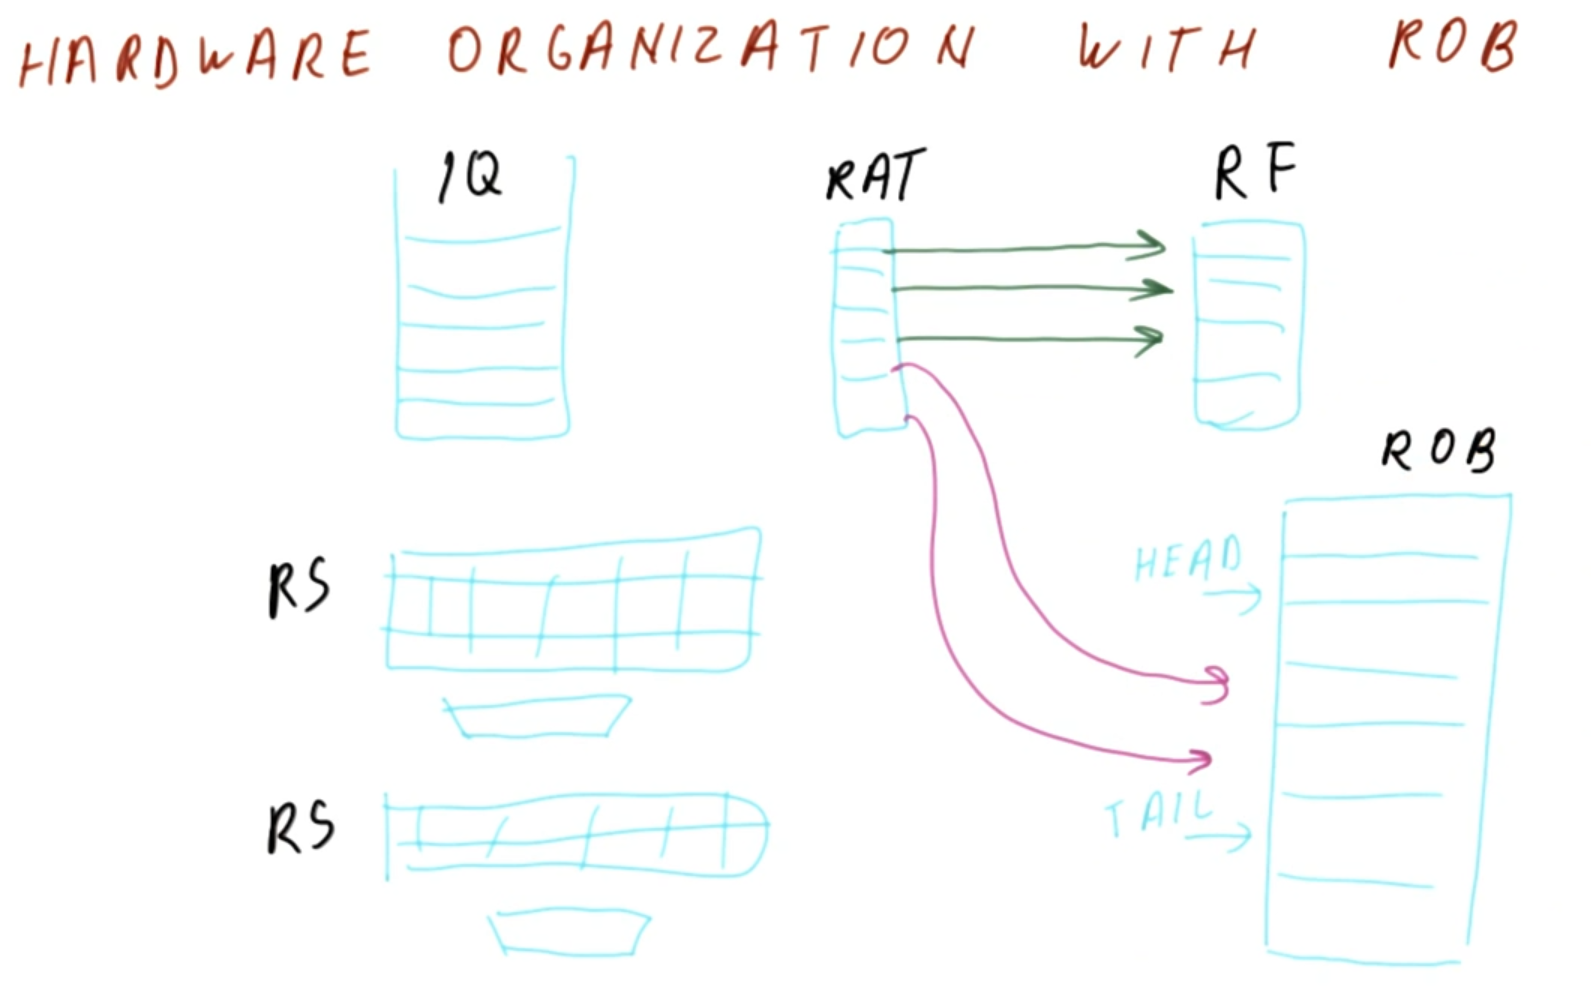 HARDWARE ORGANIZATION WITH ROB
IQ
RAT
RF
ROB
HEAD
RS
TAIL
RS